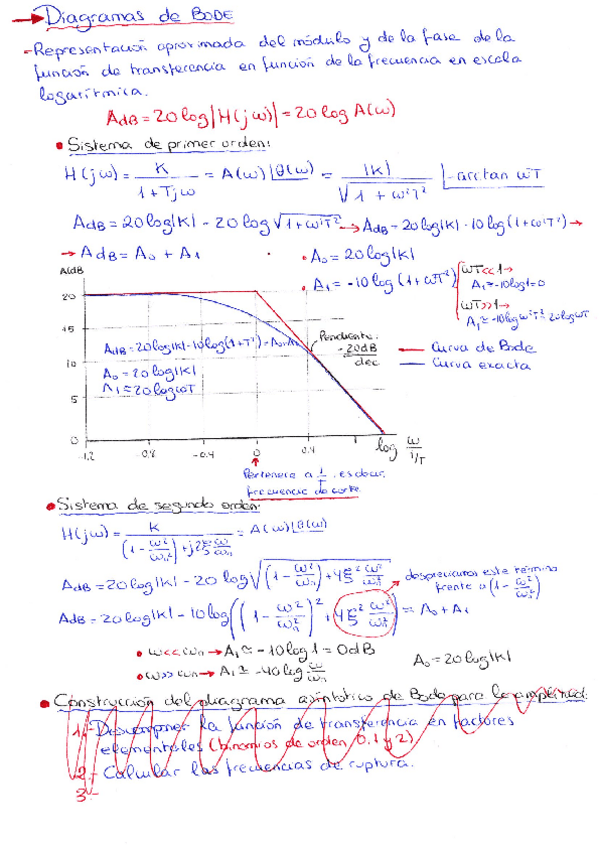 → Diagramas de BODE
- Representación aproximada del módulo y de la fase de la
función de transferencia en función de la frecuencia en escala
logarítmica.
AdB = 20 log |H(jω)| = 20 log A(ω)
• Sistema de primer orden:
H(jω) = K / (1 + Tjω) = A(ω) |θ(ω) = |K| / √(1 + ω²T²) |-arctan ωT
AdB = 20 log|K| - 20 log √(1 + ω²T²) → AdB = 20 log|K| - 10 log (1 + ω²T²) →
→ AdB = A₀ + A₁
• A₀ = 20 log|K|
• A₁ = -10 log (1 + ωT²)
ωT << 1 →
A₁ ≃ -10 log 1 = 0
ωT >> 1 →
A₁ ≃ -10 log ω²T² 20 log ωT
A(dB)
20
15
10
5
0
-1.2 -0.8 -0.4 0 0.4
log ω / 1/T
AdB = 20 log|K| - 10 log (1 + T²) = A₀ + A₁
A₀ = 20 log|K|
A₁ ≃ 20 log ωT
Pendiente:
-20dB / dec
Curva de Bode
Curva exacta
Pertenece a 1/T, es decir,
frecuencia de corte
• Sistema de segundo orden:
H(jω) = K / ((1 - ω²/ωn²) + j2ξ ω/ωn) = A(ω) |θ(ω)
AdB = 20 log|K| - 20 log √((1 - ω²/ωn²) + 4ξ² ω²/ωn²)
despreciamos este término
frente a (1 - ω²/ωn²)
AdB = 20 log|K| - 10 log ((1 - ω²/ωn²)² + 4ξ² ω²/ωn²) = A₀ + A₁
• ω << ωn → A₁ ≃ -10 log 1 = 0dB
A₀ = 20 log|K|
• ω >> ωn → A₁ ≃ -40 log ω/ωn
• Construcción del diagrama asintótico de Bode para la amplitud:
1.- Descomponer la función de transferencia en factores
elementales (binomios de orden 0, 1 y 2)
2.- Calcular las frecuencias de ruptura.
3.-